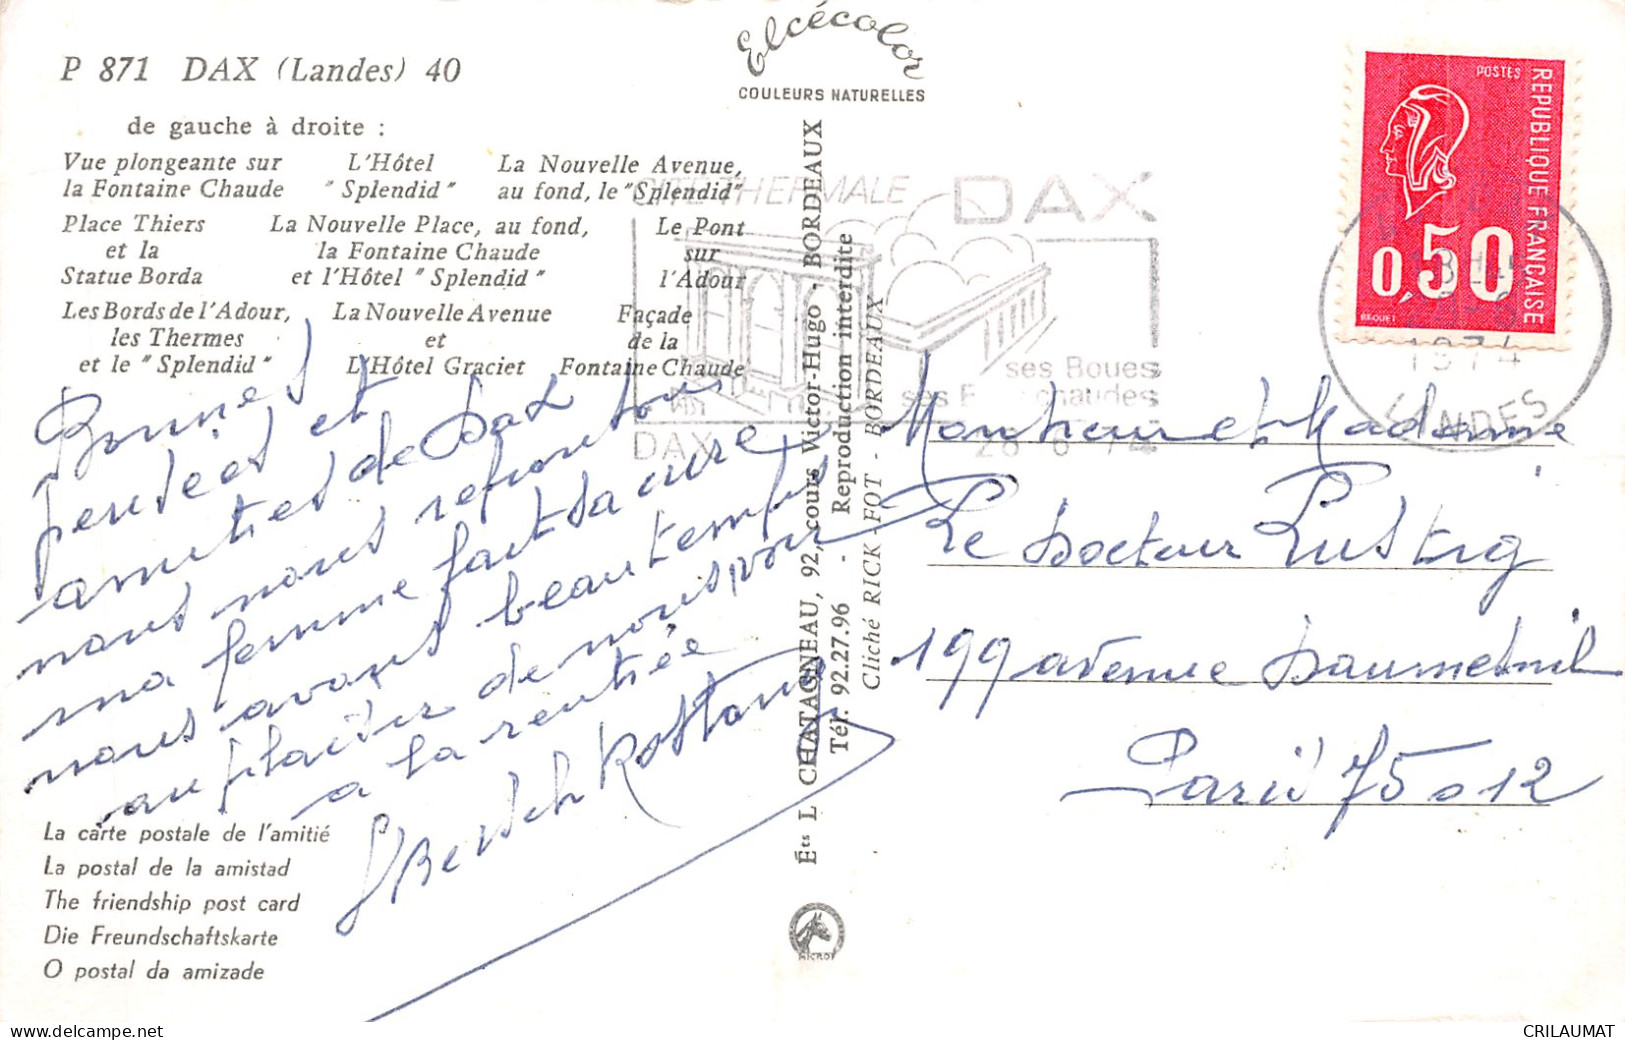 P 871 DAX (Landes) 40
de gauche à droite :
Vue plongeante sur la Fontaine Chaude
L'Hôtel "Splendid"
La Nouvelle Avenue, au fond, le "Splendid"
Place Thiers et la Statue Borda
La Nouvelle Place, au fond, la Fontaine Chaude et l'Hôtel "Splendid"
Le Pont sur l'Adour
Les Bords de l'Adour, les Thermes et le "Splendid"
La Nouvelle Avenue et L'Hôtel Graciet
Façade de la Fontaine Chaude
Bonnes
pensées et
amitiés de Dax
nous nous reposons
ma femme fait sa cure
nous avons beau temps
au plaisir de nous voir
a la rentrée
La carte postale de l'amitié
La postal de la amistad
The friendship post card
Die Freundschaftskarte
O postal da amizade
Elcécolor
COULEURS NATURELLES
Éts L. CHATAGNEAU, 92, cours Victor-Hugo - BORDEAUX
Tél. 92.27.96 - Reproduction interdite
Cliché RICK-FOT - BORDEAUX
THERMALE DAX
ses Boues
chaudes
DAX
1974
LANDES
POSTES
REPUBLIQUE FRANÇAISE
0,50
BEQUET
Monsieur et Madame
Le Docteur Lustig
199 avenue Daumesnil
Paris 75012
delcampe.net
CRILAUMAT